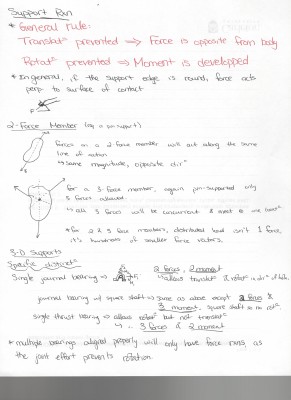 Support Rxn
* General rule:
Translat⁰ prevented ⟹ Force is opposite from body
Rotat⁰ prevented ⟹ Moment is developped
* In general, if the support edge is round, force acts
perp to surface of contact
2-Force Member (eg a pin support)
forces on a 2-force member will act along the same
line of action
↳ same magnitude, opposite dir⁰
for a 3-force member, again pin-supported only
3 forces allowed
↳ all 3 forces will be concurrent & meet @ one
* for 2 & 3 force members, distributed load isn't 1 force,
it's hundreds of smaller force vectors.
3-D Supports
Specific distinct⁰
Single journal bearing → 2 force, 2 moment
↳ allows translat⁰ & rotat⁰ in dir⁰ of
journal bearing w/ square shaft → same as above except 2 force &
3 moment, square shaft so no rot⁰
single thrust bearing → allows rotat⁰ but not translat⁰
↳ ∴ 3 force & 2 moment
* multiple bearings aligned properly will only have force rxns, as
the joint effort prevents rotation.